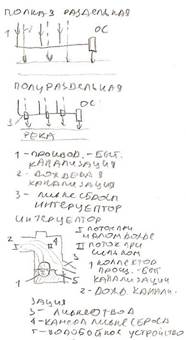 ПОЛНАЯ РАЗДЕЛЬНАЯ
1
ОС
ПОЛУРАЗДЕЛЬНАЯ
ОС
3
РЕКА
1 - ПРОИЗВОД. - БЫТ.
КАНАЛИЗАЦИЯ
2 - ДОЖДЕВАЯ
КАНАЛИЗАЦИЯ
3 - ЛИВНЕСБРОСА
ИНТЕРЦЕПТОР
ИНТЕРЦЕПТОР
I ПОТОК ПРИ
МАЛОМ ДОЖДЕ
II ПОТОК ПРИ
СИЛЬНОМ
1 КОЛЛЕКТОР
ПРОИЗ. - БЫТ
КАНАЛИЗАЦИИ
2 - ДОЖД КАНАЛИ-
ЗАЦИЯ
3 - ЛИВНЕОТВОД
4 - КАМЕРА ЛИВНЕСБРОСА
5 - ВОДОБОЙНОЕ УСТРОЙСТВО